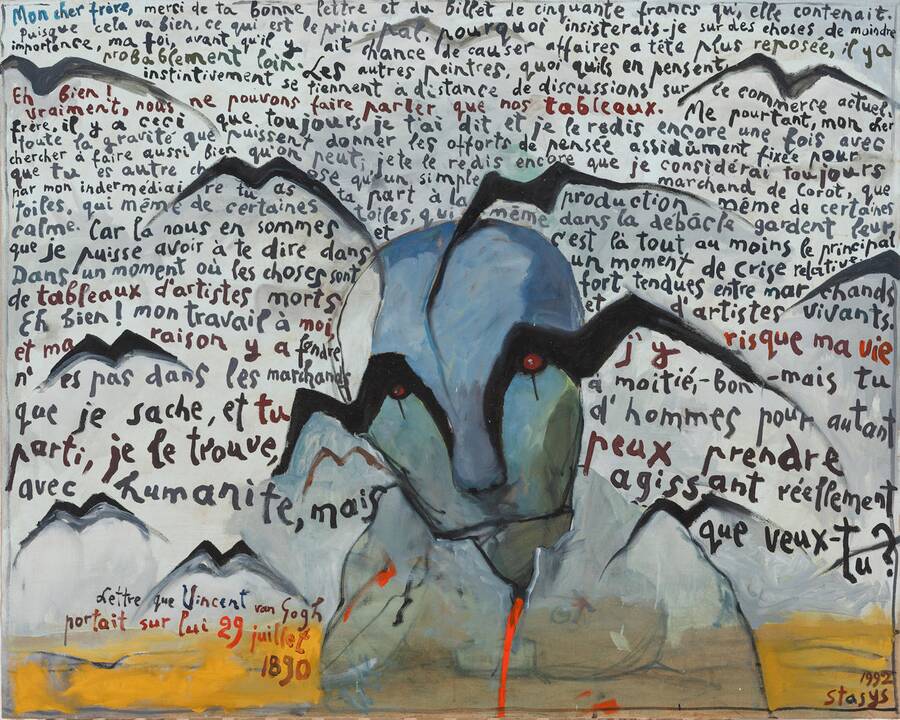 Mon cher frère, merci de ta bonne lettre et du billet de cinquante francs qu, elle contenait.
Puisque cela va bien, ce qui est le principal, pourquoi insisterais-je sur des choses de moindre
importance, ma foi, avant qu'il y ait chance de causer affaires a tête plus reposée, il y a
probablement loin.
Les autres peintres, quoi quils en pensent,
instinctivement se tiennent à distance de discussions sur le commerce actuel.
Eh bien!
vraiment, nous ne pouvons faire parler que nos tableaux. Me pourtant, mon cher
frère, il y a ceci que toujours je t'ai dit et je le redis encore une fois avec
toute la gravité que puissent donner les efforts de pensée assidûment fixée pour
chercher à faire aussi bien qu'on peut; je te le redis encore que je considérai toujours
que tu es autre ch ose qu'un simple marchand de Corot, que
par mon intermédiaire tu as ta part à la production même de certaines
toiles, qui même de certaines toiles, qui même dans la débâcle gardent leur
calme. Car là nous en sommes et c'est là tout au moins le principal
que je puisse avoir à te dire dans un moment de crise relative.
Dans un moment où les choses sont fort tendues entre marchands
de tableaux d'artistes morts et d'artistes vivants.
Eh bien! mon travail à moi, j'y risque ma vie
et ma raison y a fondre à moitié,-bon-mais tu
n' es pas dans les marchands d'hommes pour autant
que je sache, et tu peux prendre
parti, je le trouve, agissant réellement
avec humanité, mais que veux-tu?
Lettre que Vincent van Gogh
portait sur lui 29 juillet
1890
1992
stasys